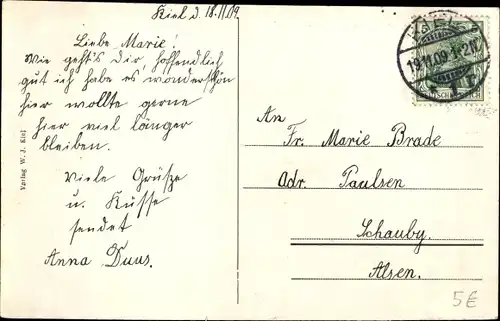 Kiel d. 18.11.09.
Liebe Marie!
Wie geht's Dir, hoffendlich
gut ich habe es wonderschön
hier wollte gerne
hier viel länger
bleiben.
Viele Grüsze
u. Küsse
sendet
Anna Duus.
Verlag W. J. Kiel
KIEL
19.11.09.1-2N
* 1 r
DEUTSCHES REICH
An
Fr. Marie Brade
Adr. Paulsen
Schauby.
Alsen.
5€